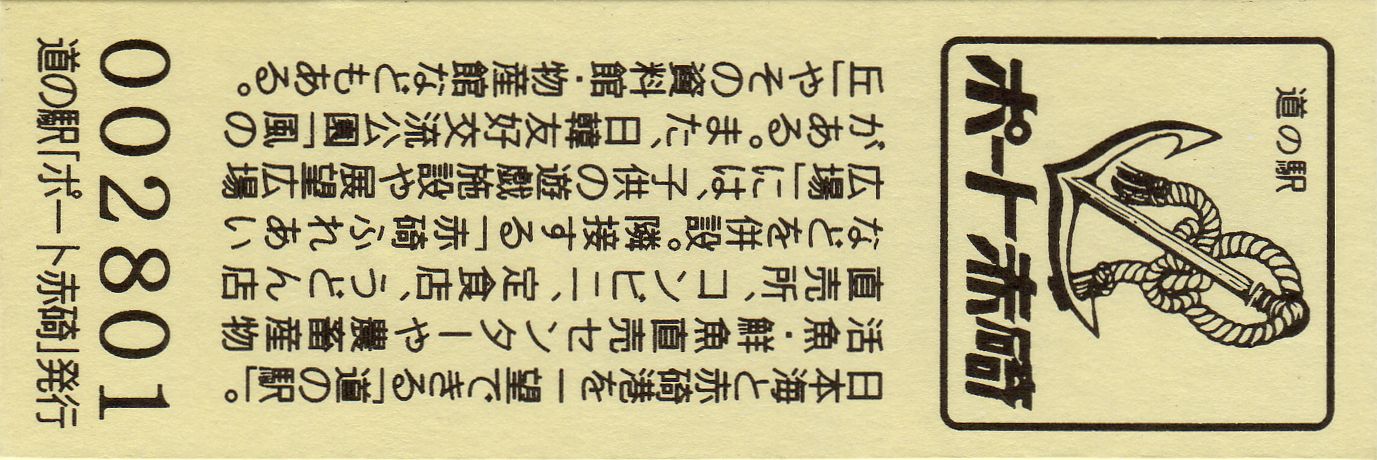 道の駅
ポート赤碕
日本海と赤碕港を一望できる「道の駅」。
活魚・鮮魚直売センターや農畜産物
直売所、コンビニ、定食店、うどん店
などを併設。隣接する「赤碕ふれあい
広場」には、子供の遊戯施設や展望広場
がある。また、日韓友好交流公園「風の
丘」やその資料館・物産館などもある。
002801
道の駅「ポート赤碕」発行